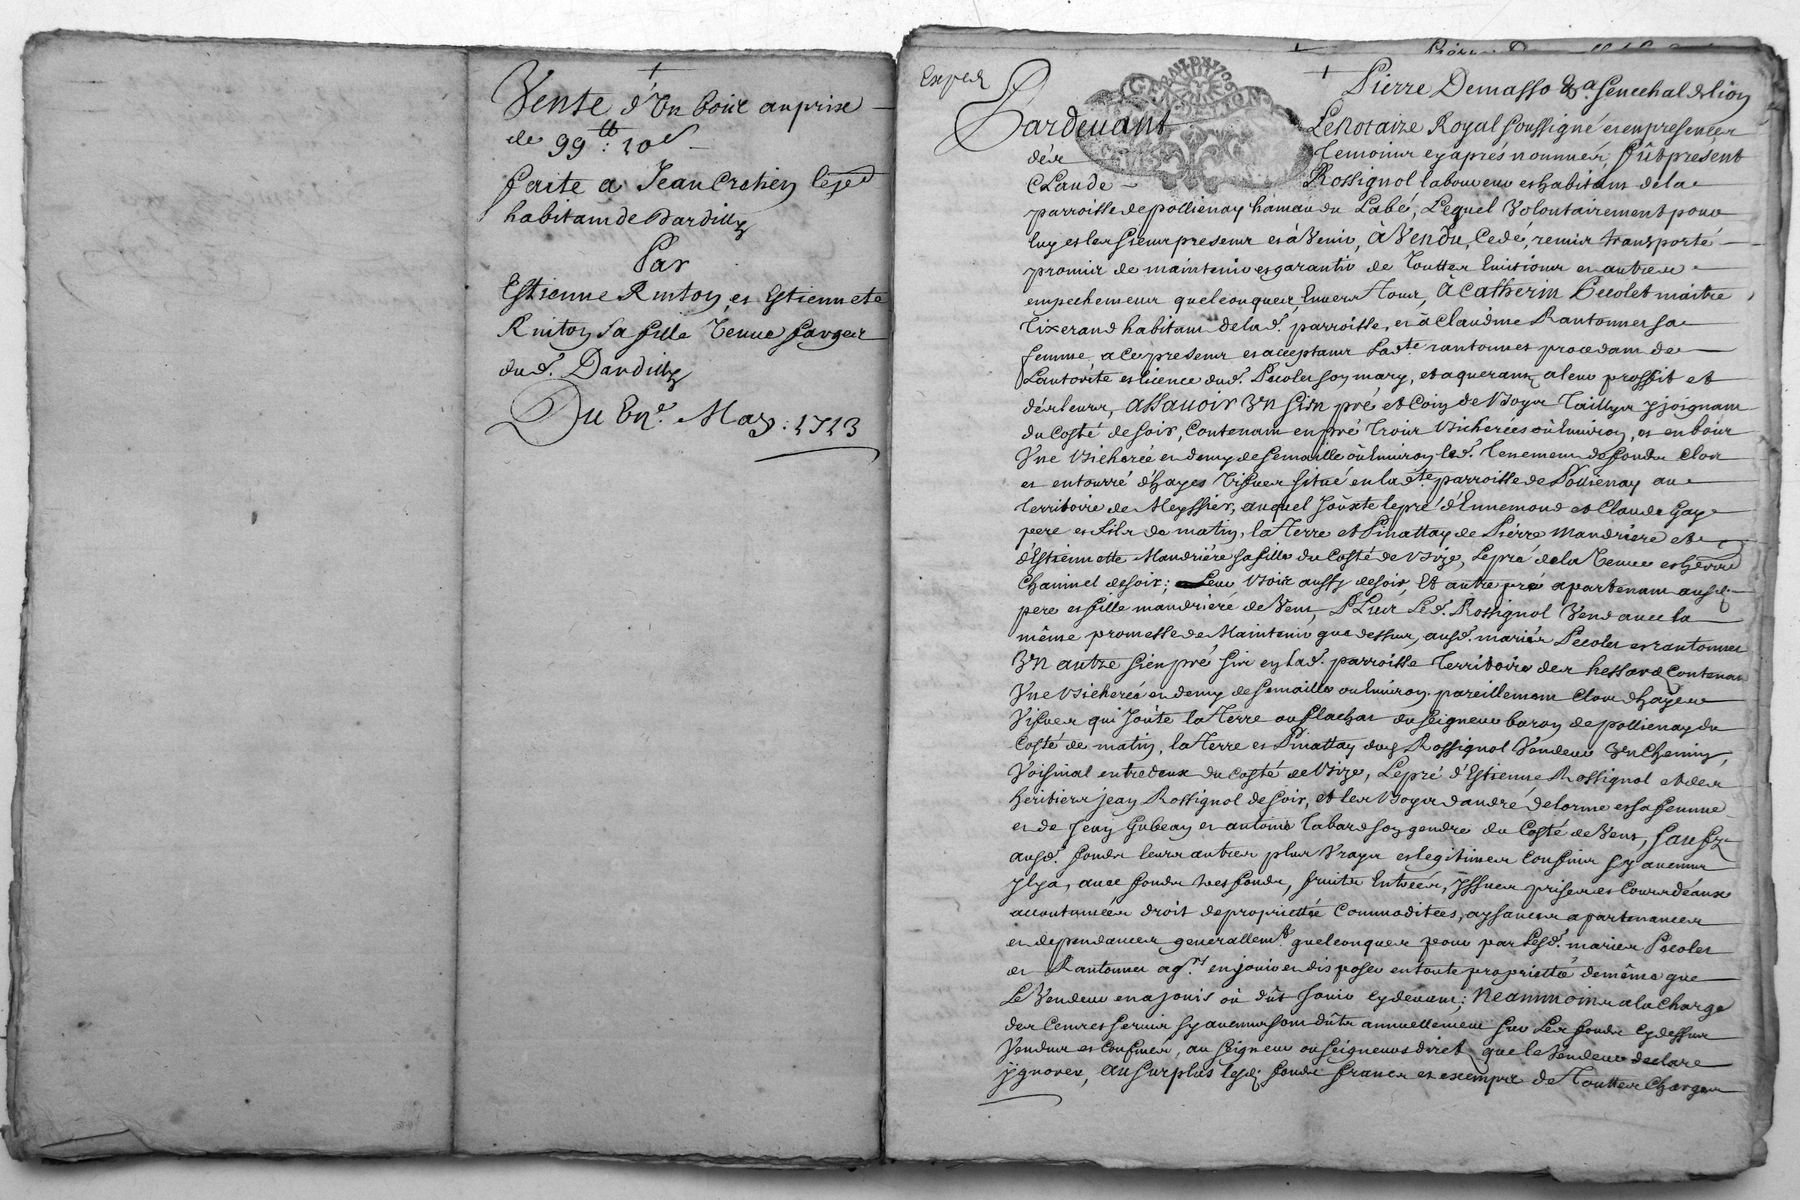 Vente d'Un boix au prix
de 99 ₶: 10 d
faite a Jean Cretien le jed
habitant de Dardilly
Par
Estienne Rinton et Estiennete
Rinton sa fille Veuve farges
dud. Dardilly
Du Un.e May: 1713
Exped
Pierre Demasso &a Senechal de lion
Pardevant Le Notaire Royal soussigné et en presence
des Temoins cy après nommés, fût présent
Claude Rossignol laboureur et habitant de la
parroisse de pollienay hamau du Labé, Lequel Volontairement pour
luy et les siens presens et à Venir, à Vendu, Cedé, remis transporté
promis de maintenir et garantir de Touttes Evitions et autres
empechemens quelconques Envers Tous, à Catherin Pecolet maitre
Tixerand habitant de la d. parroisse, et à Claudine Rantonnet sa
femme a ce presens et acceptans Lad.te rantonnet procedant de
Lautorité et licence dud. Pecolet son mary, et aquerans a leur proffit et
des leurs, assavoir Un sien pré et Coin de Boyx Taillyx y joignant
du Costé de soir, Contenant en pré Trois Bicherées où Environ, et en bois
Une Bicherée et demy de semaille où Environ led. Tenement de fonds Clos
et entourré d'hayes Vifves situé en la d.te parroisse de Pollienay au
Territoire de Meyssier, auquel Jouxte le pré d'Ennemond et Claude Gay
pere et fils de matin, la Terre et Pinattay de Pierre Mandriere et
d'Estiennette Mandriére sa fille du Costé de Bize, Le pré de la Veuve et
Chaninel de soir; Leur Boix aussy de soir, Et autre pré apartenant ausd.
pere et fille mandrieré de Vent, Plus Led. Rossignol Vend avec la
même promesse de Maintenir que dessus, ausd. mariés Pecolet et rantonnet
Un autre sien pré sis en lad. parroisse Territoire des hessard Contenant
Une Bicherée et demy de semaille ou Environ pareillement Clos d'hayes
Vifves qui Joûte la Terre ou du seigneur baron de pollienay du
Costé de matin, la Terre et Pinattay dud. Rossignol Vendeur Un Chemin
Voisinal entre deux du Costé de Bize, Le pré d'Estienne Rossignol et des
heritiers jean Rossignol de soir, et les Boyx d'andré delorme et sa femme
et de Jean Gubean et antoine Tabard son gendre du Costé de Vent, sauf
ausd. fonds leurs autres plus Vrays et legitimes Confins sy aucuns
Il y a, avec fonds tres fonds, fruits Entrées, Issues prises et Cours d'eaux
accoutumées droit de proprietté Commoditées, aysances apartenances
et dependances generallem.t quelconques pour par Lesd. mariés Pecolet
et Rantonnet aq.rs en jouir et disposer en toute proprietté de même que
Le Vendeur en a jouis où dût Jouir cy devant; Neanmoins a la Charge
des Cences servis sy aucuns sont dûts annuellement sur Les fonds cy dessus
Vendus et Confinés, au seigneur ou seigneurs diret que le Vendeur declare
ygnorer, au surplus lesd. fonds francs et exempts de Touttes Charges